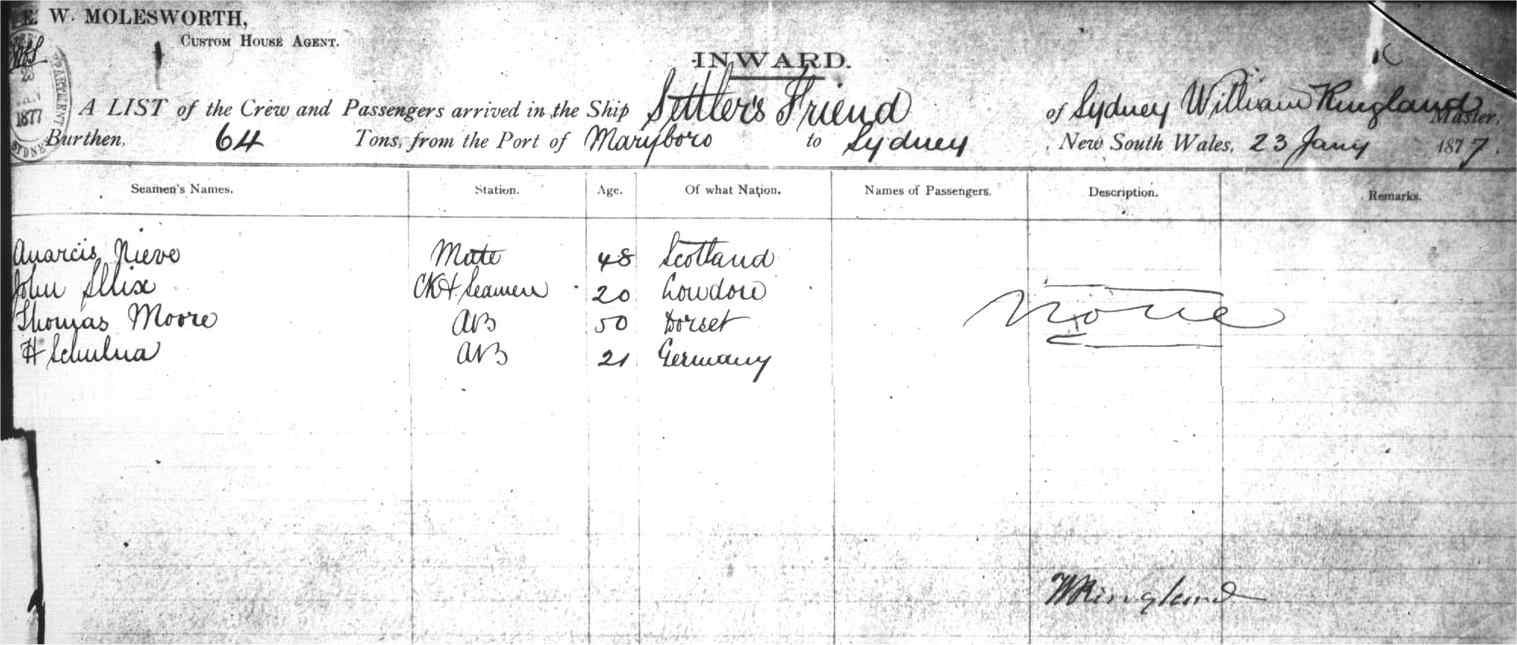 E. W. MOLESWORTH,
CUSTOM HOUSE AGENT.
INWARD.
23
1877
SYDNEY
A LIST of the Crew and Passengers arrived in the Ship Settler's Friend of Sydney William Ringland Master,
Burthen, 64 Tons, from the Port of Maryboro to Sydney, New South Wales, 23 Jany 1877.
Seamen's Names. Station. Age. Of what Nation. Names of Passengers. Description. Remarks.
Nieve Mate 48 Scotland
John Ellix Ck & Seamen 20 London
Thomas Moore AB 50 Dorset
H AB 21 Germany
None
WRingland